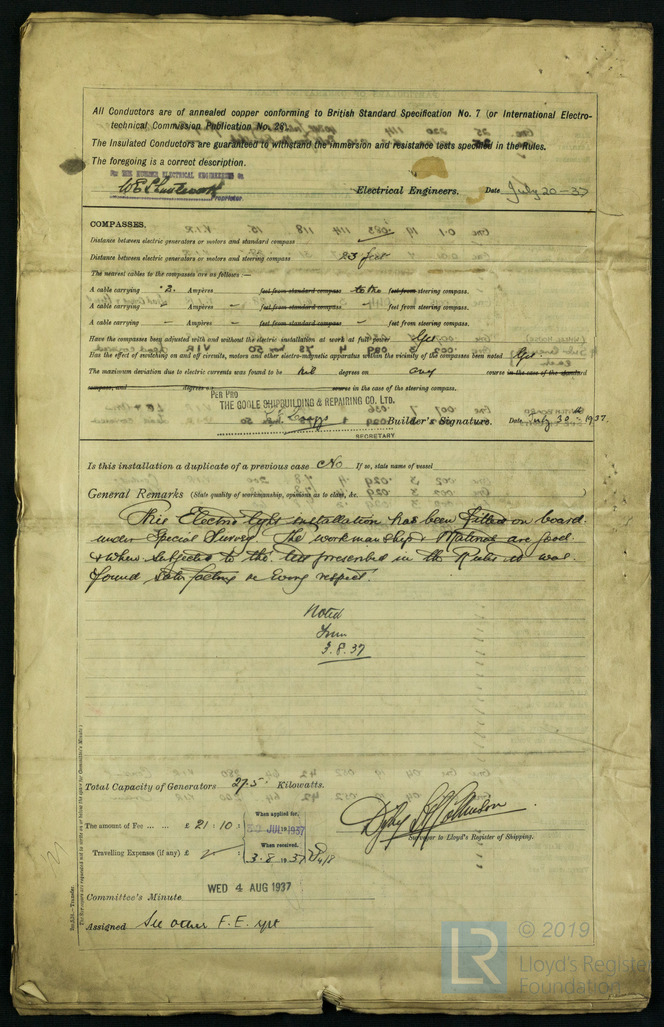 All Conductors are of annealed copper conforming to British Standard Specification No. 7 (or International Electro-
technical Commission Publication No. 28).
The Insulated Conductors are guaranteed to withstand the immersion and resistance tests specified in the Rules.
The foregoing is a correct description.
For THE HUMBER ELECTRICAL ENGINEERING Co
Proprietor Electrical Engineers. Date July 20-37
COMPASSES.
Distance between electric generators or motors and standard compass
Distance between electric generators or motors and steering compass 23 feet
The nearest cables to the compasses are as follows:—
A cable carrying ·2 Ampères feet from standard compass to the feet from steering compass.
A cable carrying – Ampères – feet from standard compass – feet from steering compass.
A cable carrying – Ampères – feet from standard compass – feet from steering compass.
Have the compasses been adjusted with and without the electric installation at work at full power Yes
Has the effect of switching on and off circuits, motors and other electro-magnetic apparatus within the vicinity of the compasses been noted Yes
The maximum deviation due to electric currents was found to be nil degrees on any course in the case of the standard
compass, and degrees on course in the case of the steering compass.
PER PRO
THE GOOLE SHIPBUILDING & REPAIRING CO. LTD.
Builder's Signature. Date July 30th 1937.
SECRETARY
Is this installation a duplicate of a previous case No If so, state name of vessel
General Remarks (State quality of workmanship, opinions as to class, &c.
This Electric light installation has been fitted on board
under Special Survey. The workmanship & Material are good
& when subjected to the test prescribed in the Rules it was
found satisfactory in every respect.
Noted
3.8.37
Total Capacity of Generators 27.5 Kilowatts.
Surveyor to Lloyd's Register of Shipping.
The amount of Fee ... ... £ 21 : 10 : When applied for, JUL 1937
Travelling Expenses (if any) £ : When received, 3.8.1937
Committee's Minute WED 4 AUG 1937
Assigned See other F.E. rpt
© 2019
LR
Lloyd's Register
Foundation